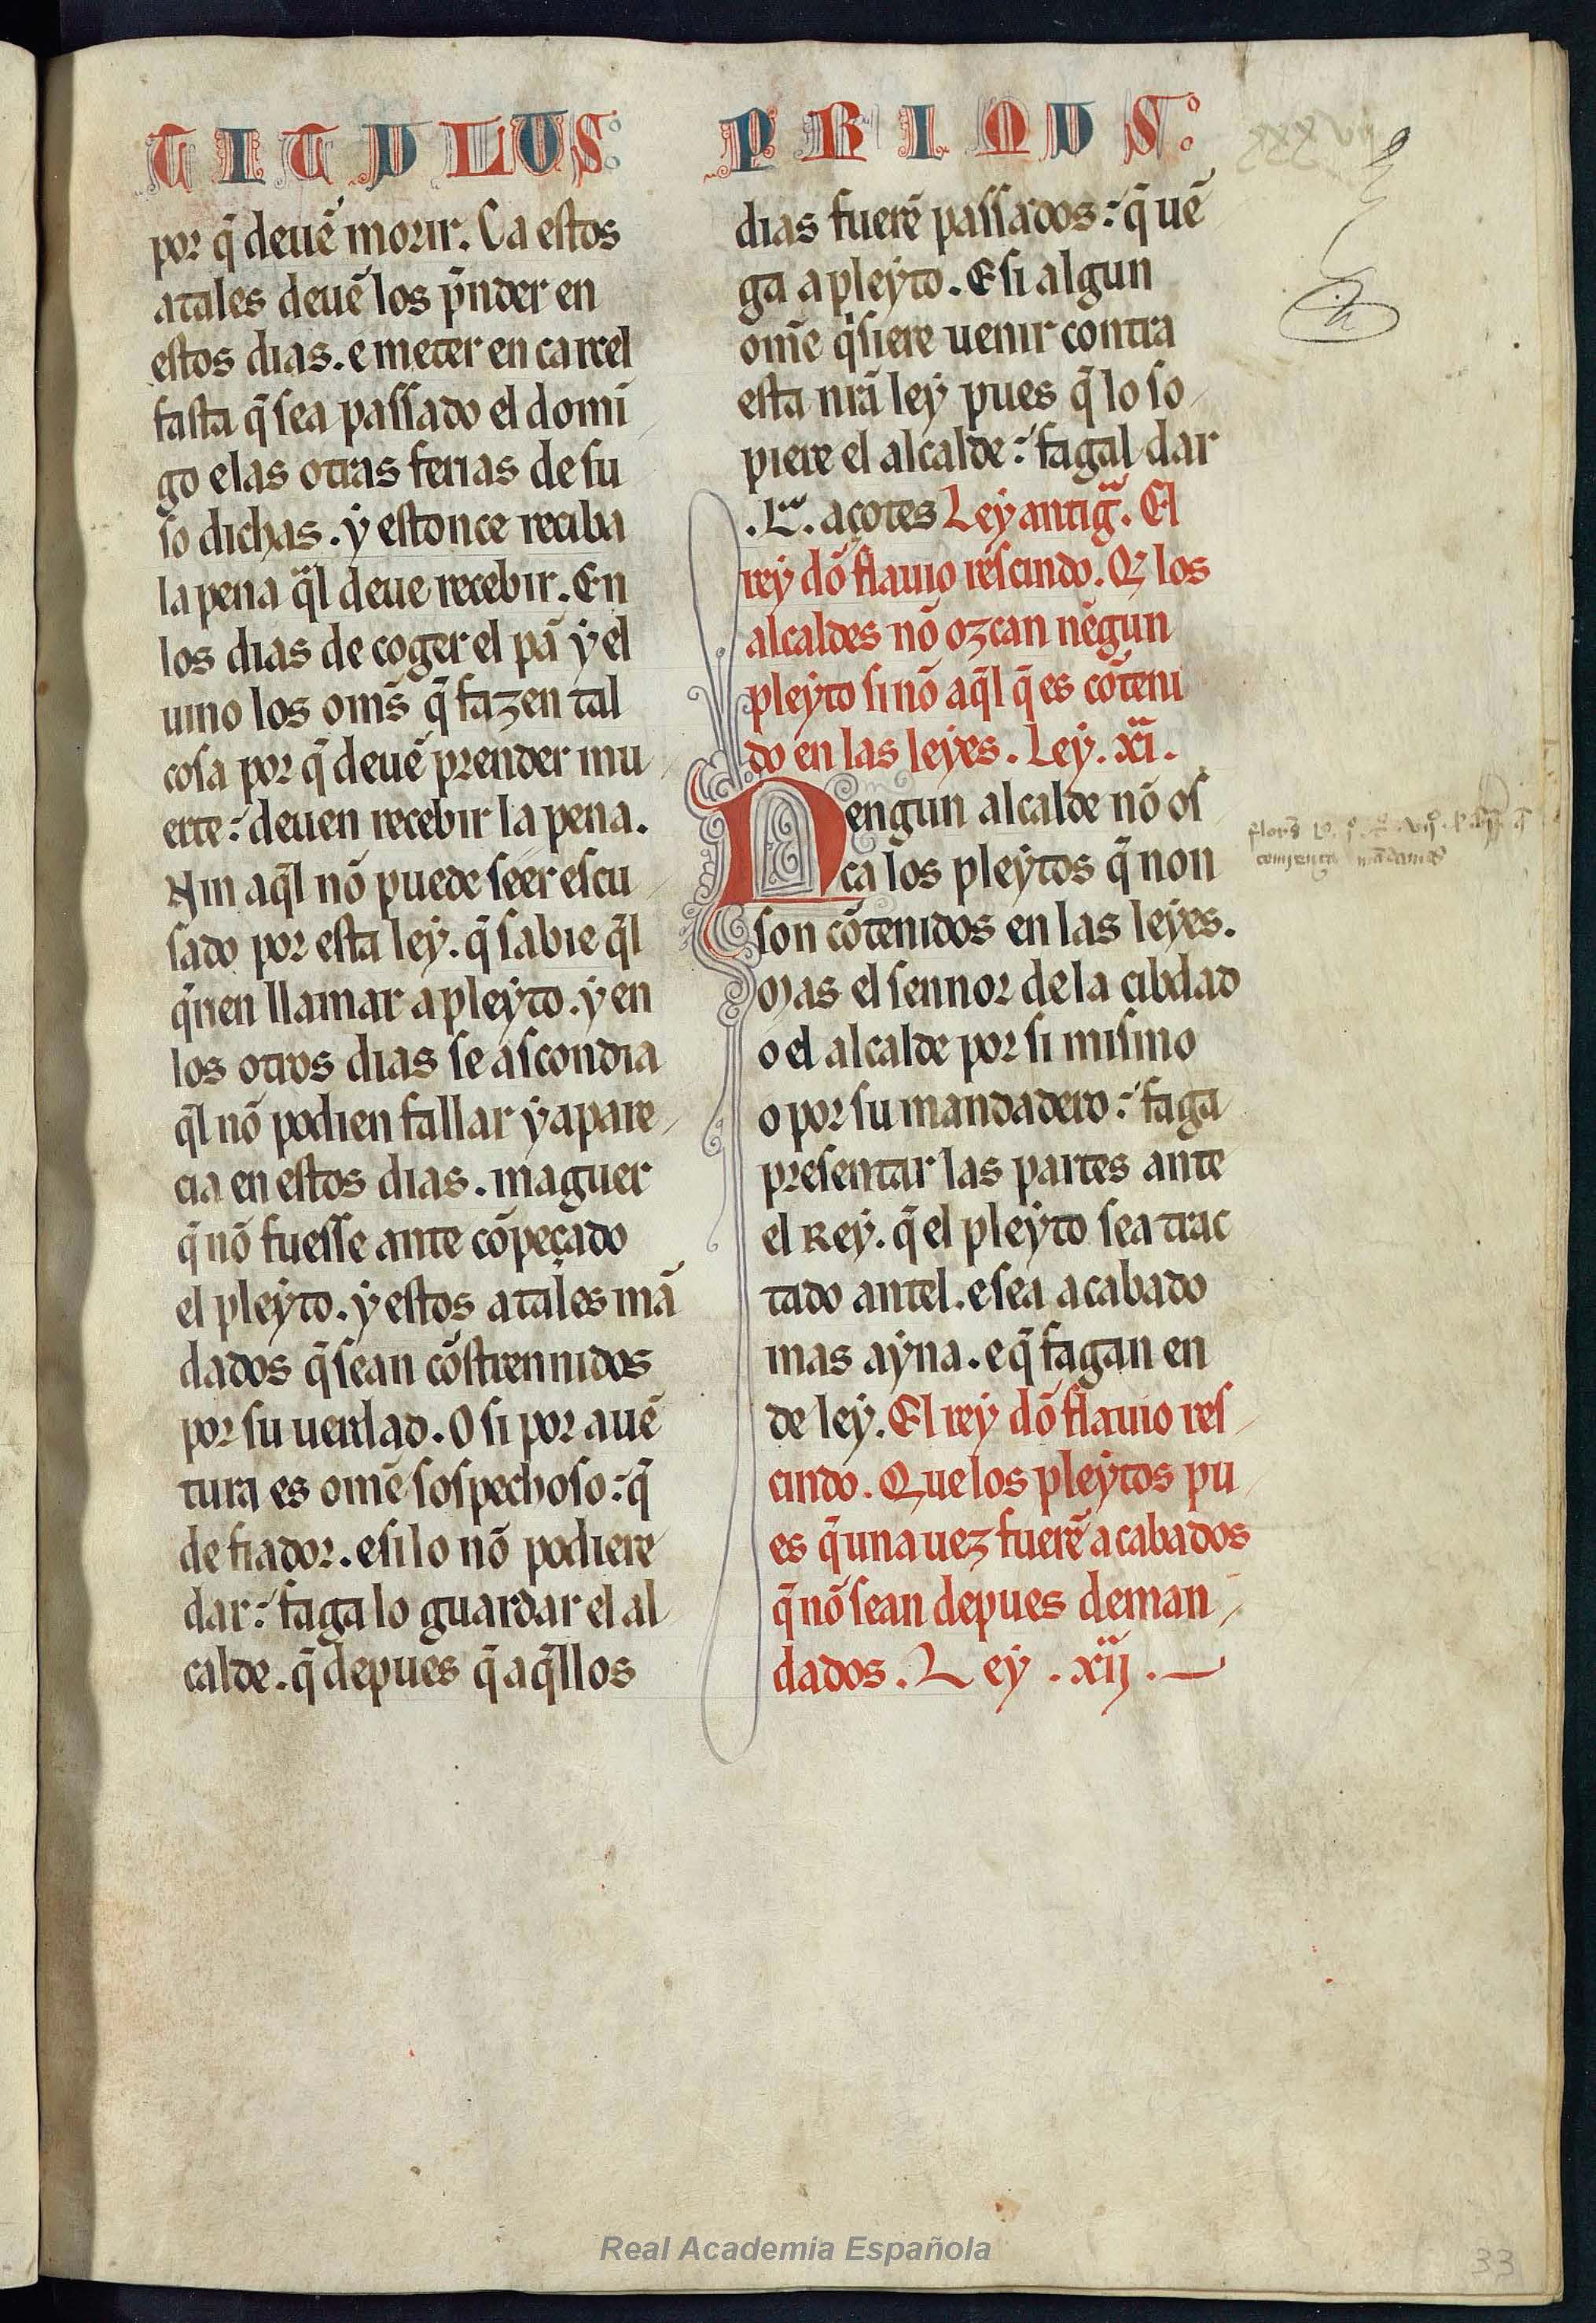 TITULUS PRIMUS:
por q̃ deuẽ morir. Ca estos
atales deuẽ los p̃nder en
estos dias. e meter en carcel
fasta q̃ sea passado el domi
go e las otras ferias de su
so dichas. ẏ estonce reciba
la pena q̃l deue recebir. En
los dias de coger el pã ẏ el
uino los om̃s q̃ fazen tal
cosa por q̃ deuẽ prender mu
erte: deuen recebir la pena.
Nin aq̃l nõ puede seer escu
sado por esta leẏ. q̃ sabie q̃l
q̃rien llamar a pleẏto. ẏ en
los otros dias se ascondia
q̃l nõ podien fallar ẏ apare
cia en estos dias. maguer
q̃ nõ fuesse ante cõpeçado
el pleẏto. ẏ estos atales mã
dados q̃ sean cõstrennidos
por su uerdad. O si por auẽ
tura es omẽ sospechoso: q̃
de fiador. e si lo nõ podiere
dar: faga lo guardar el al
calde. q̃ depues q̃ aq̃llos
dias fuerẽ passados: q̃ uẽ
ga a pleẏto. E si algun
om̃e q̃siere uenir contra
esta nr̃a leẏ pues q̃ lo so
piere el alcalde: fagal dar
.L. açotes Leẏ antig̃. El
reẏ dõ flauio resçindo. Q̃ los
alcaldes nõ ozcan nẽgun
pleẏto si nõ aq̃l q̃ es cõteni
do en las leẏes. Leẏ. xi.
Nengun alcalde nõ os
ca los pleẏtos q̃ non
son cõtenidos en las leẏes.
Mas el sennor de la cibdad
o el alcalde por si mismo
o por su mandadero: faga
presentar las partes ante
el Reẏ. q̃ el pleẏto sea trac
tado antel. e sea acabado
mas aẏna. e q̃ fagan en
de leẏ. El reẏ dõ flauio res
cindo. Que los pleẏtos pu
es q̃ una uez fuerẽ acabados
q̃ nõ sean depues deman
dados. Leẏ. xij.
33
Real Academia Española